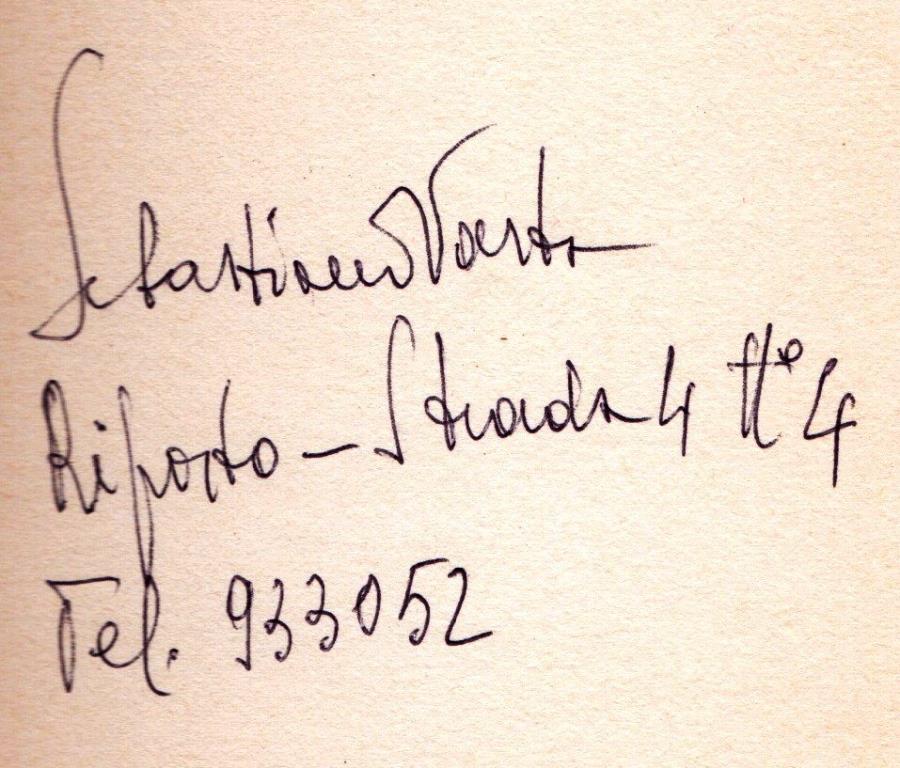 Sebastiano Vasta
Riposto - Strada 4 n° 4
Tel. 933052